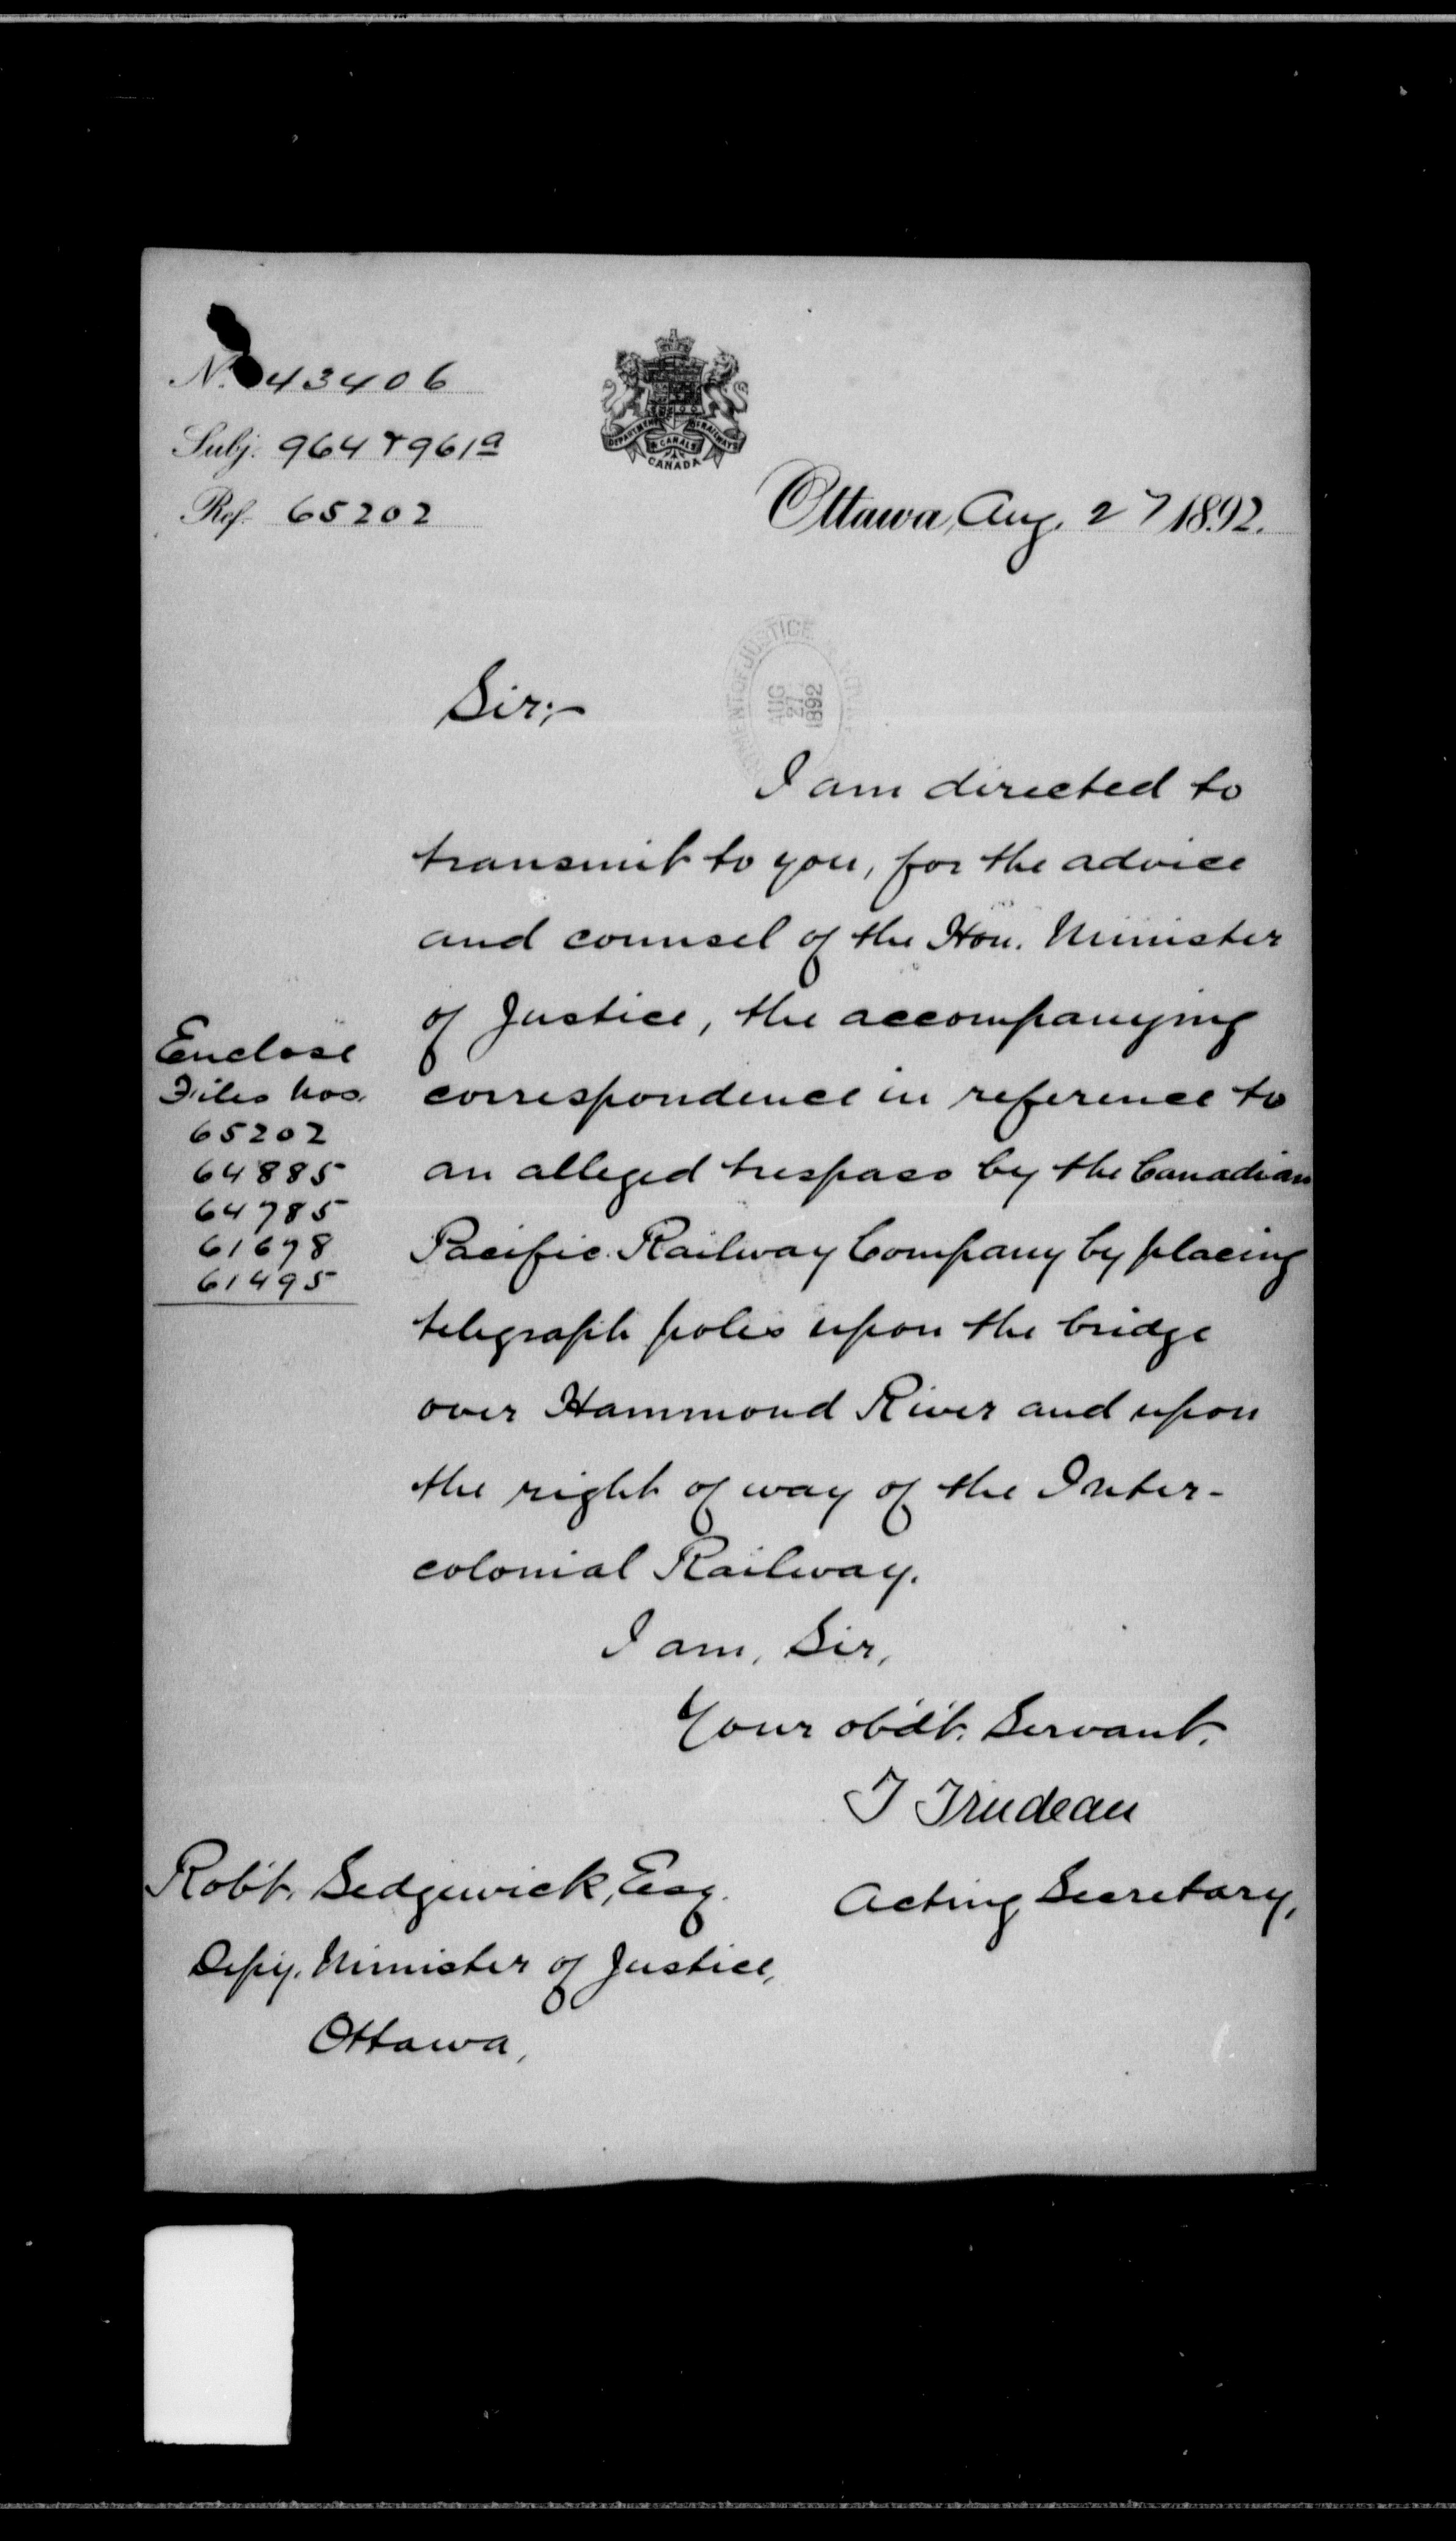 No. 43406
Subj. 964 & 961a
Ref. 65202
DEPARTMENT OF RAILWAYS
& CANALS
CANADA
Ottawa, Aug. 27 1892.
OF JUSTICE
AUG
27
1892
Sir;-
I am directed to
transmit to you, for the advice
and counsel of the Hon. Minister
of Justice, the accompanying
correspondence in reference to
an alleged trespass by the Canadian
Pacific Railway Company by placing
telegraph poles upon the bridge
over Hammond River and upon
the right of way of the Inter-
colonial Railway.
Enclose
Files nos.
65202
64885
64785
61678
61495
I am, Sir,
Your obd't. Servant.
T Trudeau
Acting Secretary,
Rob't. Sedgewick, Esq.
Depy. Minister of Justice,
Ottawa,